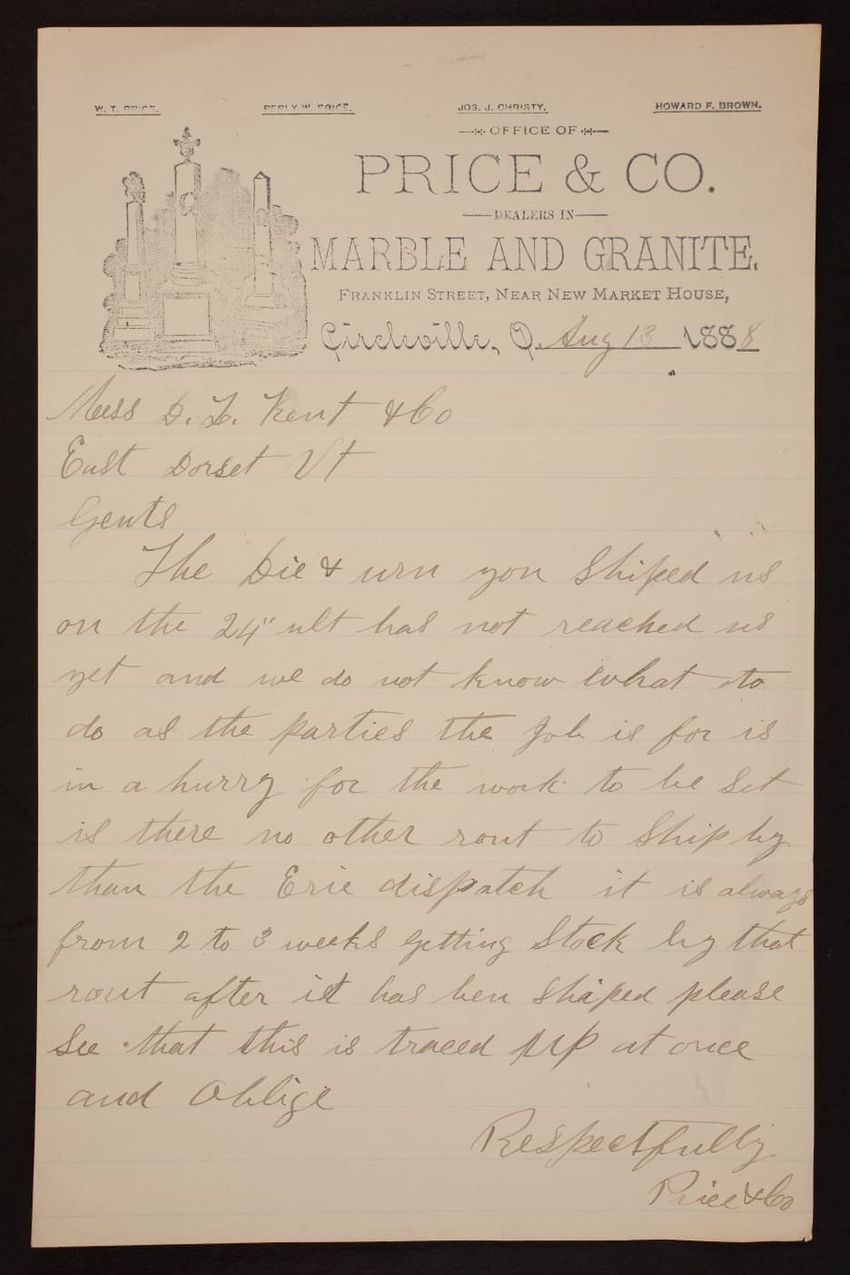 W. T. PRICE. PERLY W. PRICE. JOS. J. CHRISTY. HOWARD F. BROWN.
OFFICE OF
PRICE & CO.
DEALERS IN
MARBLE AND GRANITE.
FRANKLIN STREET, NEAR NEW MARKET HOUSE,
Circleville, O. Aug 13 1888
Mess D. L. Kent & Co
East Dorset Vt
Gents
The Die & urn you Shiped us
on the 24" ult has not reached us
yet and we do not know what to
do as the parties the Job is for is
in a hurry for the work to be Set
is there no other rout to Ship by
than the Erie dispatch it is always
from 2 to 3 weeks getting Stock by that
rout after it has ben Shiped please
See that this is traced up at once
and Oblige
Respectfully
Price & Co